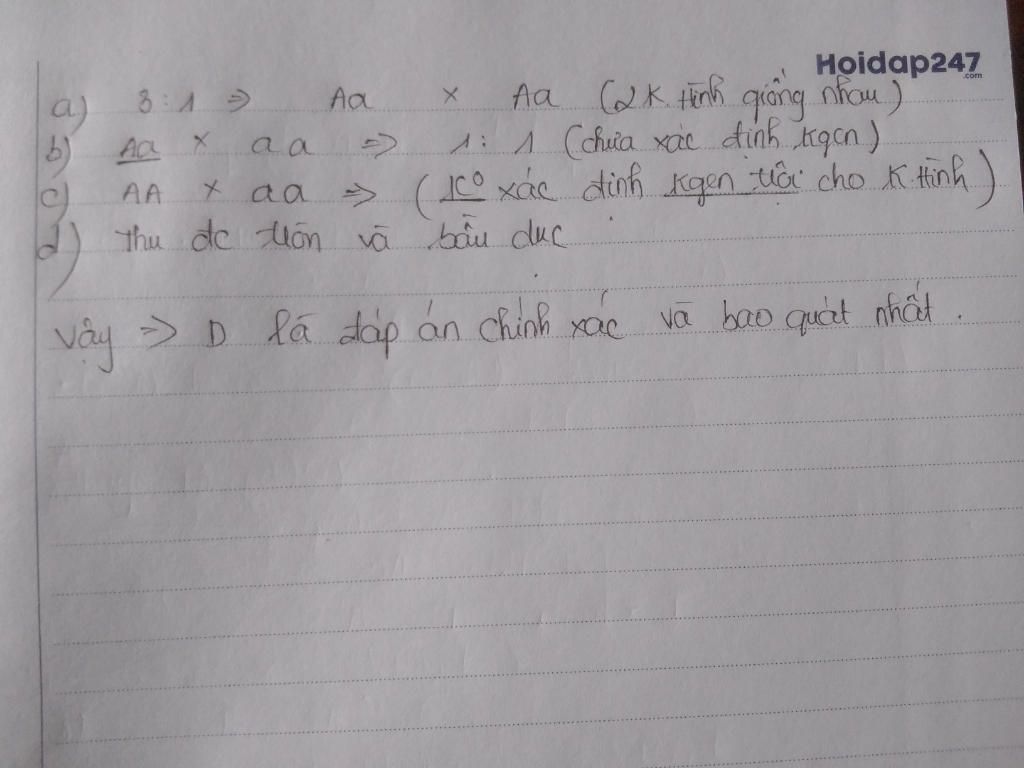 Hoidap247
.com
a) 3 : 1 => Aa x Aa (2 K hình giống nhau)
b) Aa x aa => 1 : 1 (chưa xác định kgen)
c) AA x aa => (K° xác định kgen trội cho K hình)
d) thu đc tròn và bầu dục
Vậy => D là đáp án chính xác và bao quát nhất.